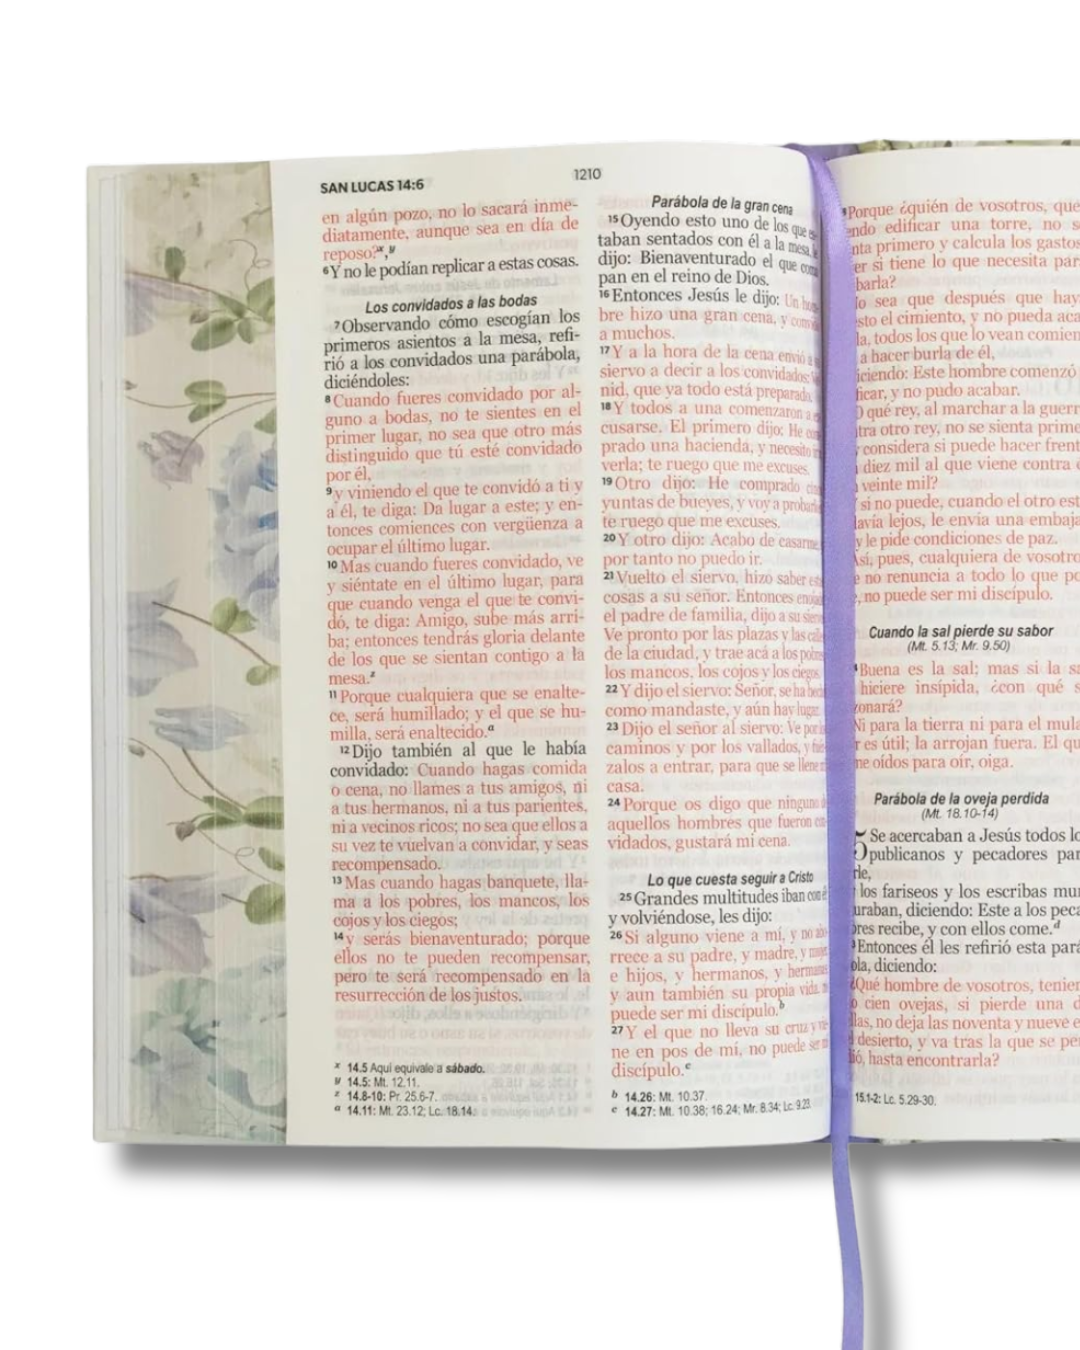 SAN LUCAS 14:6
1210
en algún pozo, no lo sacará inme-
diatamente, aunque sea en día de
reposo?x,y
6Y no le podían replicar a estas cosas.
Los convidados a las bodas
7Observando cómo escogían los
primeros asientos a la mesa, refi-
rió a los convidados una parábola,
diciéndoles:
8Cuando fueres convidado por al-
guno a bodas, no te sientes en el
primer lugar, no sea que otro más
distinguido que tú esté convidado
por él,
9y viniendo el que te convidó a ti y
a él, te diga: Da lugar a este; y en-
tonces comiences con vergüenza a
ocupar el último lugar.
10Mas cuando fueres convidado, ve
y siéntate en el último lugar, para
que cuando venga el que te convi-
dó, te diga: Amigo, sube más arri-
ba; entonces tendrás gloria delante
de los que se sientan contigo a la
mesa.z
11Porque cualquiera que se enalte-
ce, será humillado; y el que se hu-
milla, será enaltecido.a
12Dijo también al que le había
convidado: Cuando hagas comida
o cena, no llames a tus amigos, ni
a tus hermanos, ni a tus parientes,
ni a vecinos ricos; no sea que ellos a
su vez te vuelvan a convidar, y seas
recompensado.
13Mas cuando hagas banquete, lla-
ma a los pobres, los mancos, los
cojos y los ciegos;
14y serás bienaventurado; porque
ellos no te pueden recompensar,
pero te será recompensado en la
resurrección de los justos.
x 14.5 Aquí equivale a sábado.
y 14.5: Mt. 12.11.
z 14.8-10: Pr. 25.6-7.
a 14.11: Mt. 23.12; Lc. 18.14.
Parábola de la gran cena
15Oyendo esto uno de los que
taban sentados con él a la mesa,
dijo: Bienaventurado el que
pan en el reino de Dios.
16Entonces Jesús le dijo: Un
bre hizo una gran cena, y
a muchos.
17Y a la hora de la cena envió
siervo a decir a los convidados:
nid, que ya todo está preparado.
18Y todos a una comenzaron
cusarse. El primero dijo: He
prado una hacienda, y necesito
verla; te ruego que me excuses.
19Otro dijo: He comprado
yuntas de bueyes, y voy a
te ruego que me excuses.
20Y otro dijo: Acabo de casarme,
por tanto no puedo ir.
21Vuelto el siervo, hizo saber
cosas a su señor. Entonces
el padre de familia, dijo a su
Ve pronto por las plazas y las
de la ciudad, y trae acá a los pobres,
los mancos, los cojos y los ciegos.
22Y dijo el siervo: Señor, se ha
como mandaste, y aún hay lugar.
23Dijo el señor al siervo: Ve por
caminos y por los vallados, y
zalos a entrar, para que se llene
casa.
24Porque os digo que ninguno
aquellos hombres que fueron
vidados, gustará mi cena.
Lo que cuesta seguir a Cristo
25Grandes multitudes iban con él;
y volviéndose, les dijo:
26Si alguno viene a mí, y no
rrece a su padre, y madre, y
e hijos, y hermanos, y hermanas,
y aun también su propia vida,
puede ser mi discípulo.b
27Y el que no lleva su cruz y
ne en pos de mí, no puede ser
discípulo.c
b 14.26: Mt. 10.37.
c 14.27: Mt. 10.38; 16.24; Mr. 8.34; Lc. 9.23.
Porque ¿quién de vosotros, que
edificar una torre, no
primero y calcula los gastos
si tiene lo que necesita
sea que después que
el cimiento, y no pueda
todos los que lo vean
a hacer burla de él,
Este hombre comenzó
y no pudo acabar.
qué rey, al marchar a la
otro rey, no se sienta
considera si puede hacer
diez mil al que viene contra
veinte mil?
si no puede, cuando el otro
lejos, le envía una
y le pide condiciones de paz.
pues, cualquiera de
no renuncia a todo lo que
no puede ser mi discípulo.
Cuando la sal pierde su sabor
(Mt. 5.13; Mr. 9.50)
Buena es la sal; mas si la
hiciere insípida, ¿con qué
Ni para la tierra ni para el
es útil; la arrojan fuera. El
oídos para oír, oiga.
Parábola de la oveja perdida
(Mt. 18.10-14)
Se acercaban a Jesús todos
publicanos y pecadores
los fariseos y los escribas
diciendo: Este a los
recibe, y con ellos come.d
Entonces él les refirió esta
diciendo:
¿Qué hombre de vosotros,
cien ovejas, si pierde una
no deja las noventa y nueve
desierto, y va tras la que se
hasta encontrarla?
15.1-2: Lc. 5.29-30.